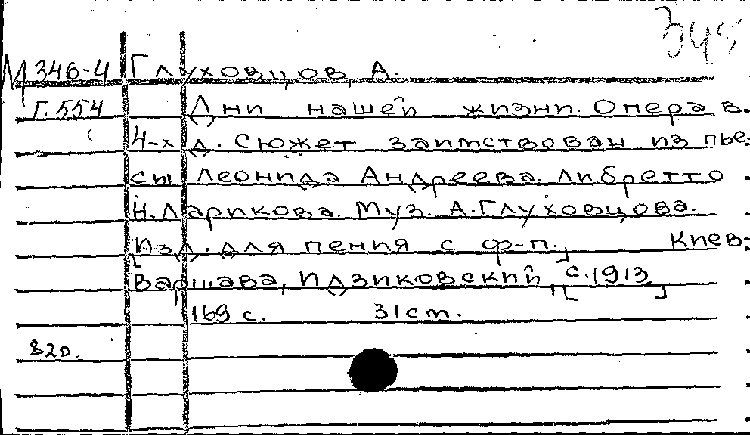 345
М 346-4 Глуховцов, А.
Г.554 Дни нашей жизни. Опера в.
4-х д. Сюжет заимствован из пье-
сы Леонида Андреева. Либретто
Н. Ларикова. Муз. А. Глуховцова.
[Изд. для пения с ф-п.] Киев-
Варшава, Идзиковский, [с. 1913]
169 с. 31 cm.
82р.